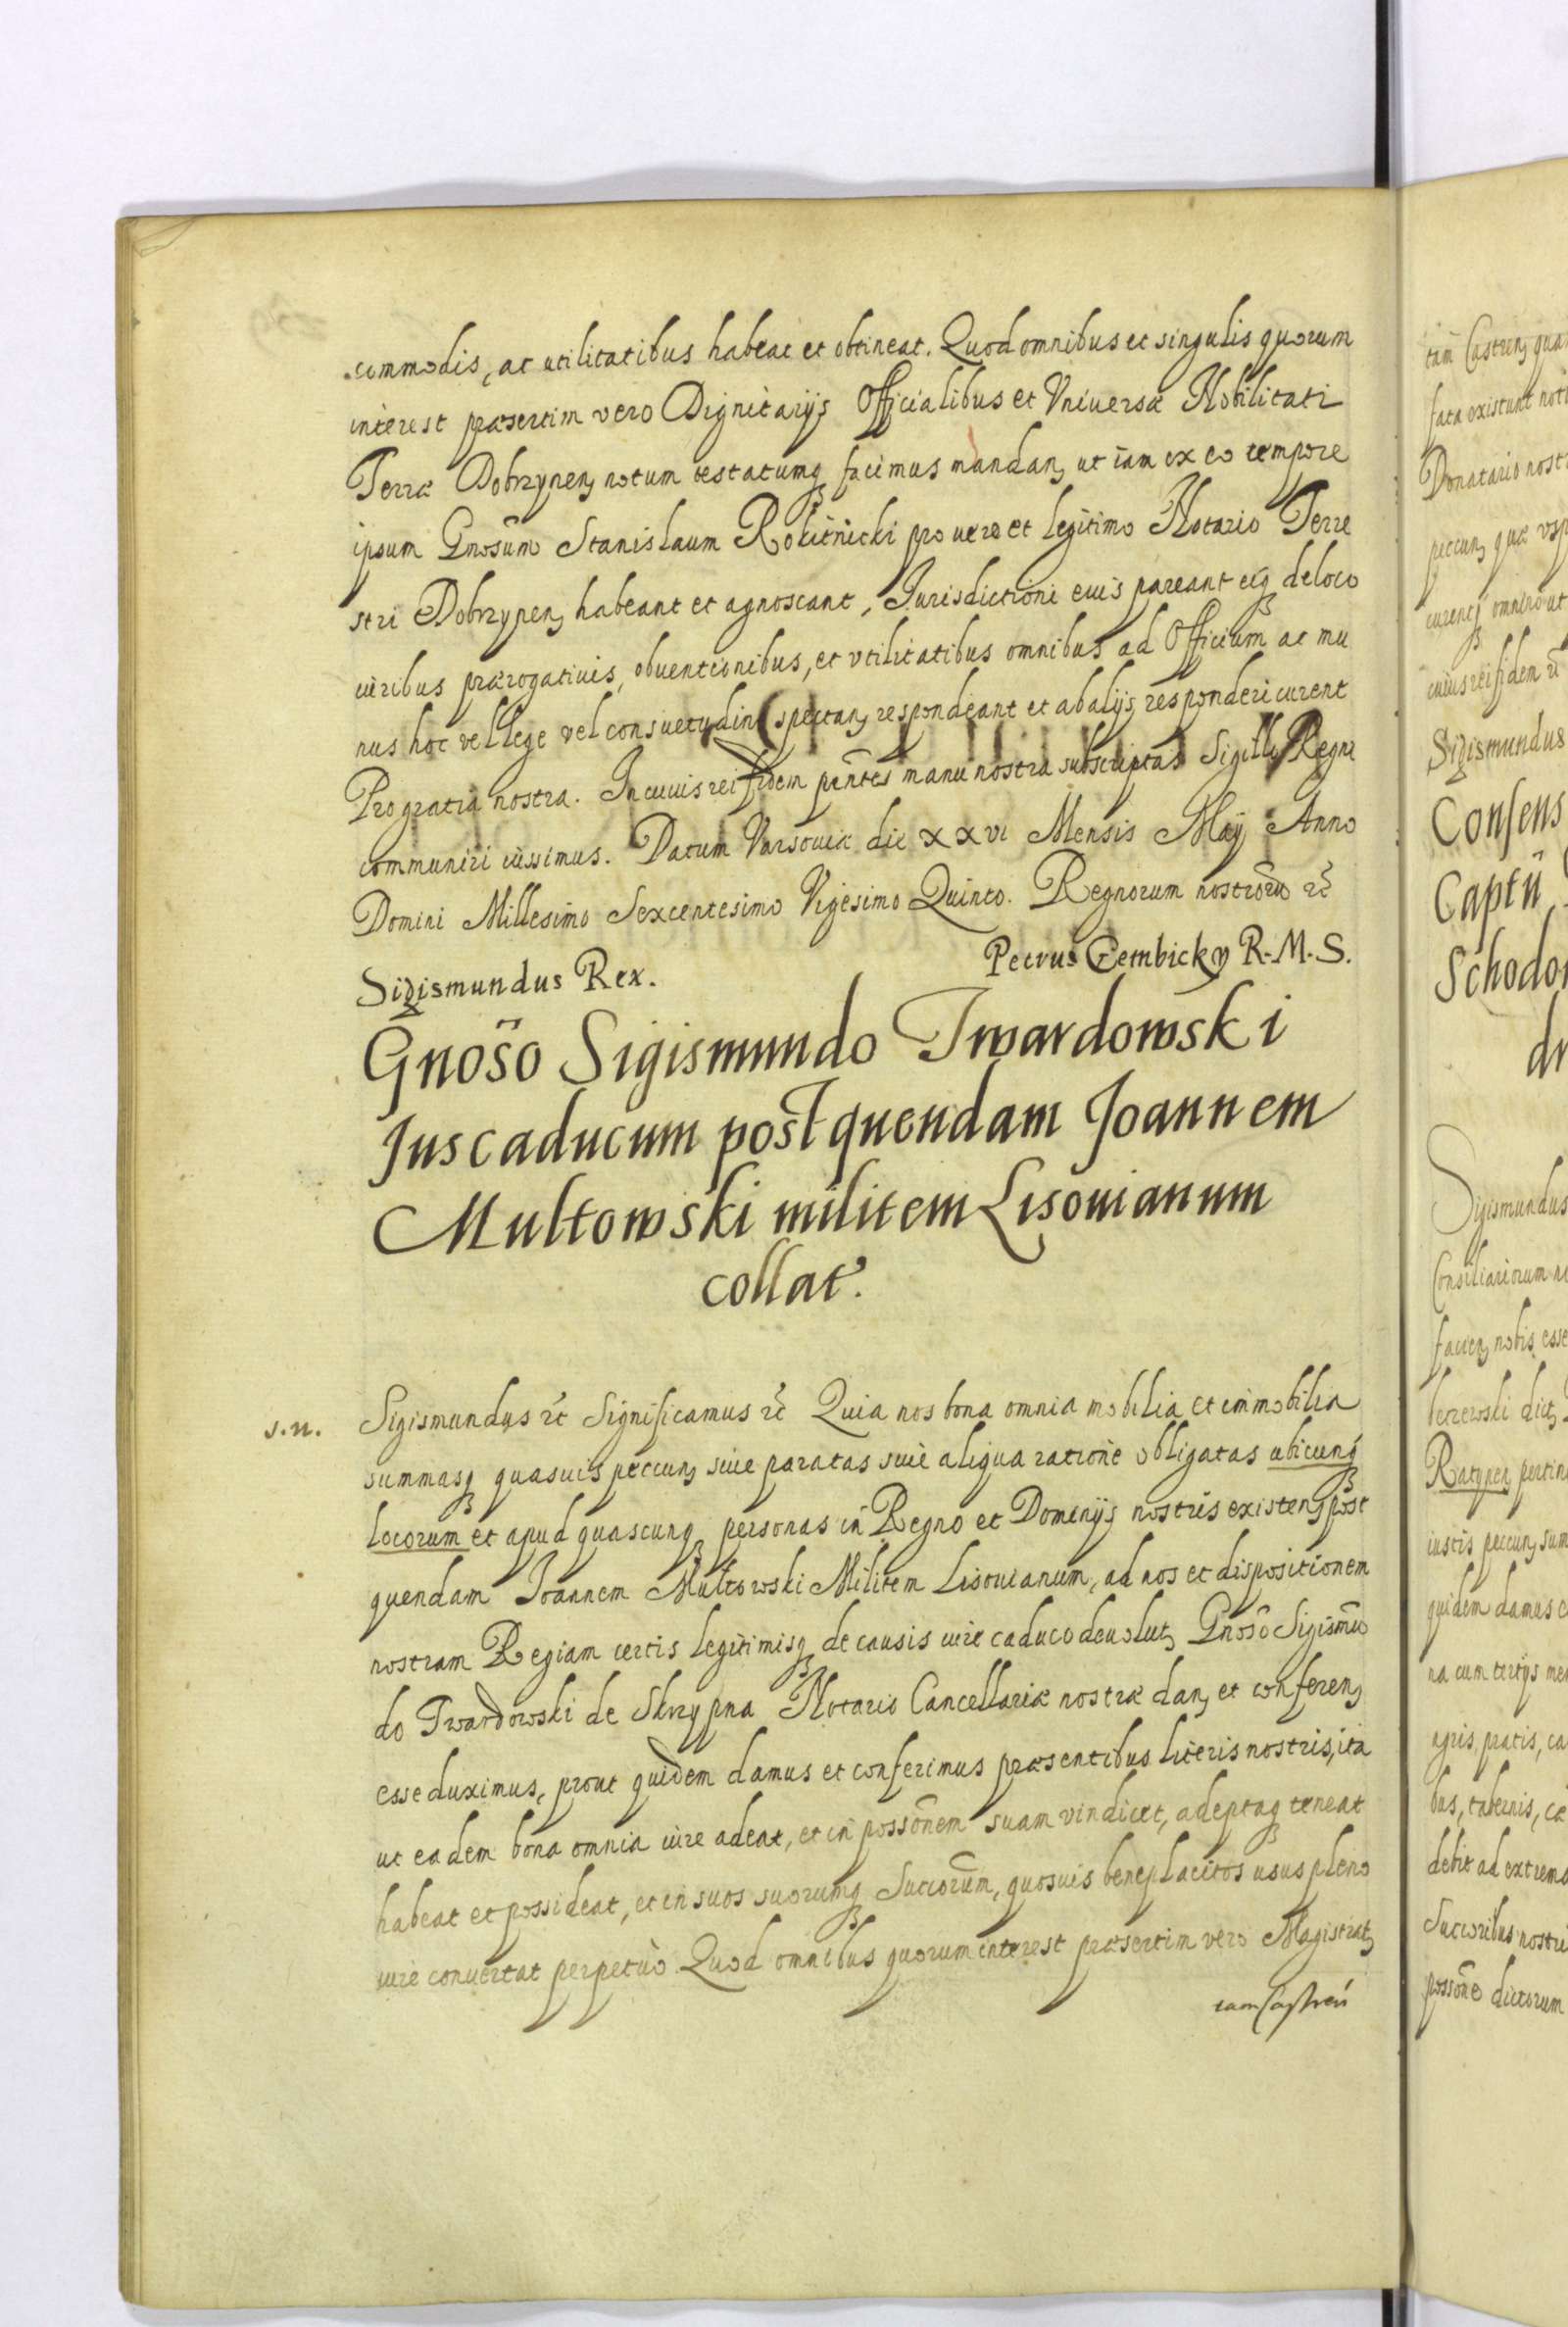 commodis, ac utilitatibus habeat et obtineat. Quod omnibus et singulis quorum
interest præsertim vero Dignitarijs Officialibus et Vniuersæ Nobilitati
Terræ Dobrzynen, notum testatumq facimus mandan, ut iam ex eo tempore
ipsum Gnosum Stanislaum Rokitnicki pro vero et legitimo Notario Terre
stri Dobrzynen, habeant et agnoscant, Jurisdictioni euis pareant eiq de loco
iuribus prærogatiuis, obuentionibus, et vtilitatibus omnibus ad Officium ac mu
nus hoc vel lege vel consuetudine spectan, respondeant et ab alijs responderi curent
Pro gratia nostra. In cuius rei fidem pñtes manu nostra subscriptas Sigillo Regni
communiri iussimus. Datum Varsouiæ die xxvi Mensis Maij Anno
Domini Millesimo Sexcentesimo Vigesimo Quinto. Regnorum nostrorũ &c̃
Petrus Gembicky R. M. S.
Sigismundus Rex.
Gnõso Sigismundo Twardowski
Jus caducum post quendam Joannem
Multowski militem Lisouianum
collat.
s. n.
Sigismundus &c̃ Significamus &c̃ Quia nos bona omnia mobilia et immobilia
summasq quasuis peccun, siue paratas siue aliqua ratione obligatas ubicunq
locorum et apud quascunq personas in Regno et Dominijs nostris existen, post
quendam Joannem Multowski Militem Lisouianum, ad nos et dispositionem
nostram Regiam certis legitimisq de causis iure caduco deuolut, Gnosõ Sigismũ
do Twardowski de Skrzypna Notario Cancellariæ nostræ dan, et conferen,
esse duximus, prout quidem damus et conferimus præsentibus literis nostris, ita
ut eadem bona omnia iure adeat, et in possõnem suam vindicet, adeptaq teneat
habeat et possideat, et in suos suorumq Succorũm, quosuis beneplacitos usus pleno
iure conuertat perpetuò. Quod omnibus quorum interest præsertim vero Magistrat,
tam Castreñ
tam Castren, qua
fata existunt noti
Donatario nostr
peccun, quæ vsp
curentq omnino ut
cuius rei fidem &c̃
Sigismundus
Consens
Captũ
Schodon
Sigismundus
Consiliariorum no
facien, nobis esse
Ratynen, pertin
iustis peccun, sum
quidem damus e
na cum tertijs me
agris, pratis, ca
bus, tabernis, ce
debit ad extrema
Succoribus nostri
possõne dictorum